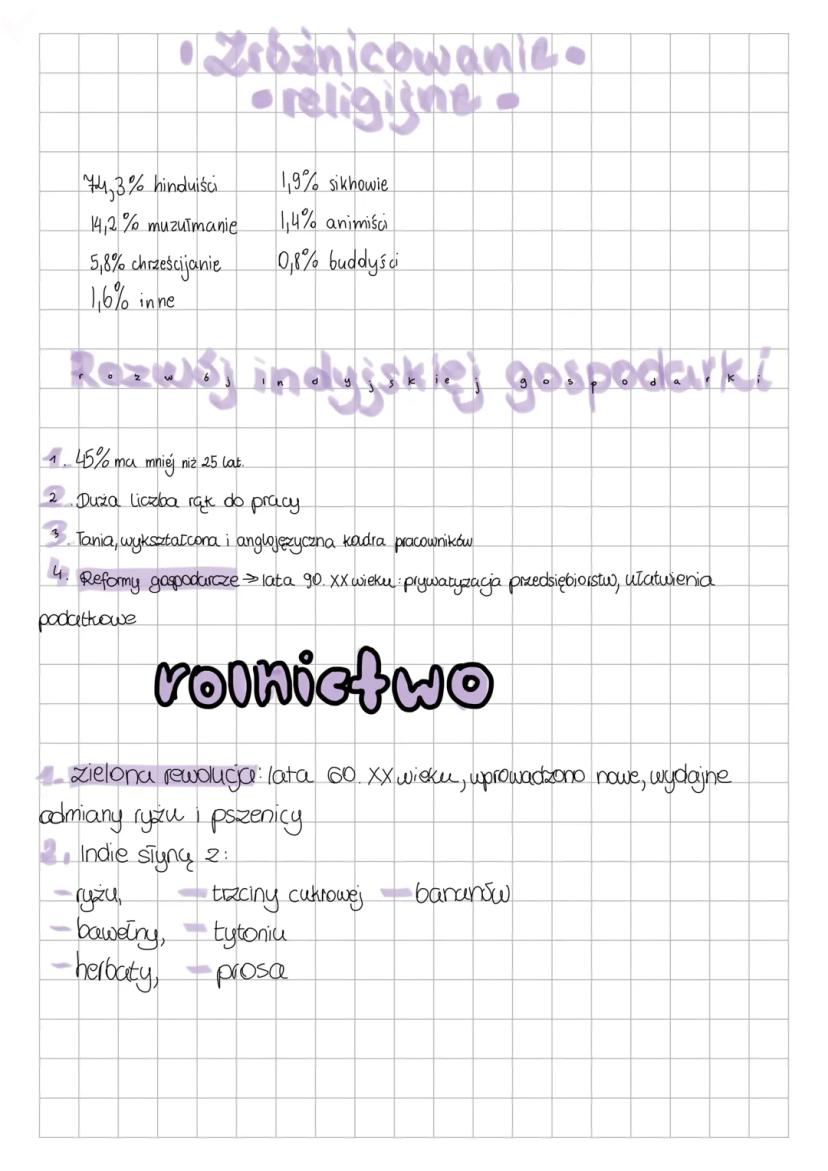 • Zróżnicowanie •
• religijne •
74,3% hinduiści 1,9% sikhowie
14,2% muzułmanie 1,4% animiści
5,8% chrześcijanie 0,8% buddyści
1,6% inne
Rozwój indyjskiej gospodarki
1. 45% ma mniej niż 25 lat.
2. Duża liczba rąk do pracy
3. Tania, wykształcona i anglojęzyczna kadra pracowników
4. Reformy gospodarcze → lata 90. XX wieku: prywatyzacja przedsiębiorstw, ułatwienia
podatkowe
rolnictwo
1. zielona rewolucja: lata 60. XX wieku, wprowadzono nowe, wydajne
odmiany ryżu i pszenicy
2. Indie słyną z:
- ryżu, - trzciny cukrowej - bananów
- bawełny, - tytoniu
- herbaty, - prosa